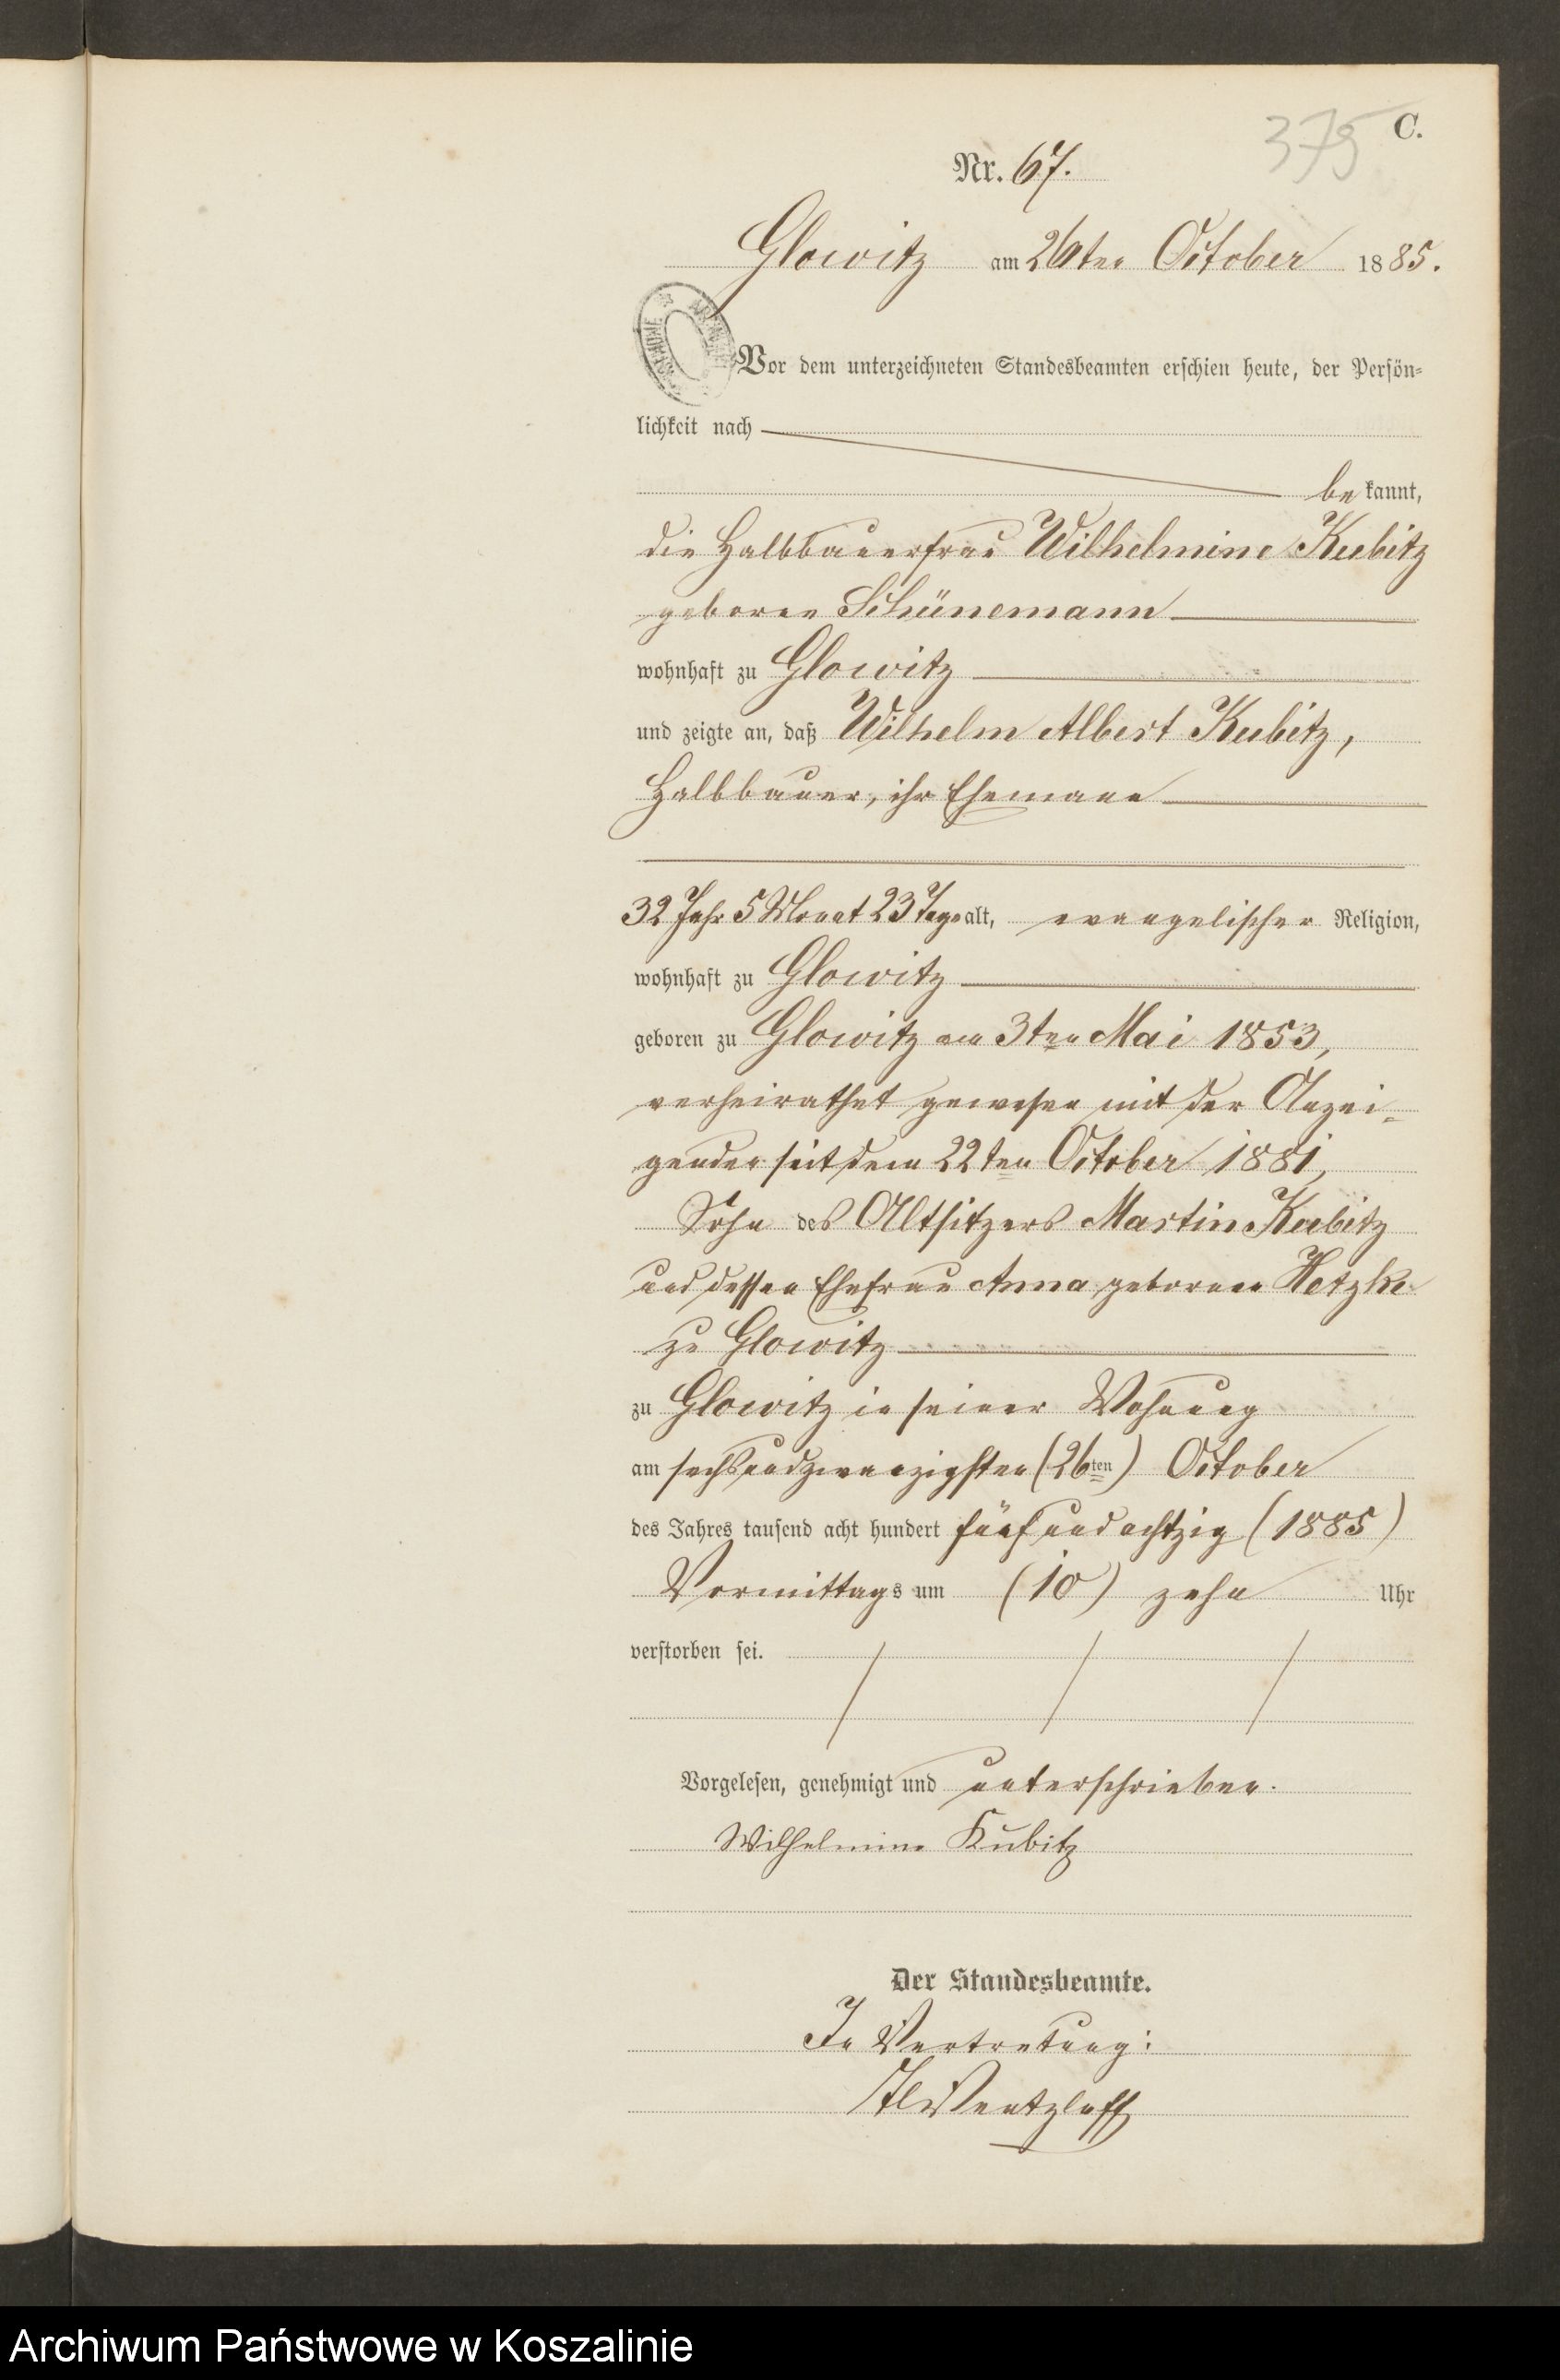 C.
375
Nr. 67.
Glowitz am 26ten October 1885.
Vor dem unterzeichneten Standesbeamten erschien heute, der Persön-
lichkeit nach
be kannt,
die Halbbauerfrau Wilhelmine Kubitz
geboren Schünemann
wohnhaft zu Glowitz
und zeigte an, daß Wilhelm Albert Kubitz,
Halbbauer, ihr Ehemann
32 Jahr 5 Monat 23 Tage alt, evangelischer Religion,
wohnhaft zu Glowitz
geboren zu Glowitz am 3ten Mai 1853,
verheirathet gewesen mit der Anzei-
genden seit dem 22ten October 1881,
Sohn des Altsitzers Martin Kubitz
und dessen Ehefrau Anna geborenen Hetzke
zu Glowitz
zu Glowitz in seiner Wohnung
am sechsundzwanzigsten (26ten) October
des Jahres tausend acht hundert fünfundachtzig (1885)
Vormittags um (10) zehn Uhr
verstorben sei.
Vorgelesen, genehmigt und unterschrieben.
Wilhelmine Kubitz
Der Standesbeamte.
In Vertretung:
Wentzlaff
Archiwum Państwowe w Koszalinie